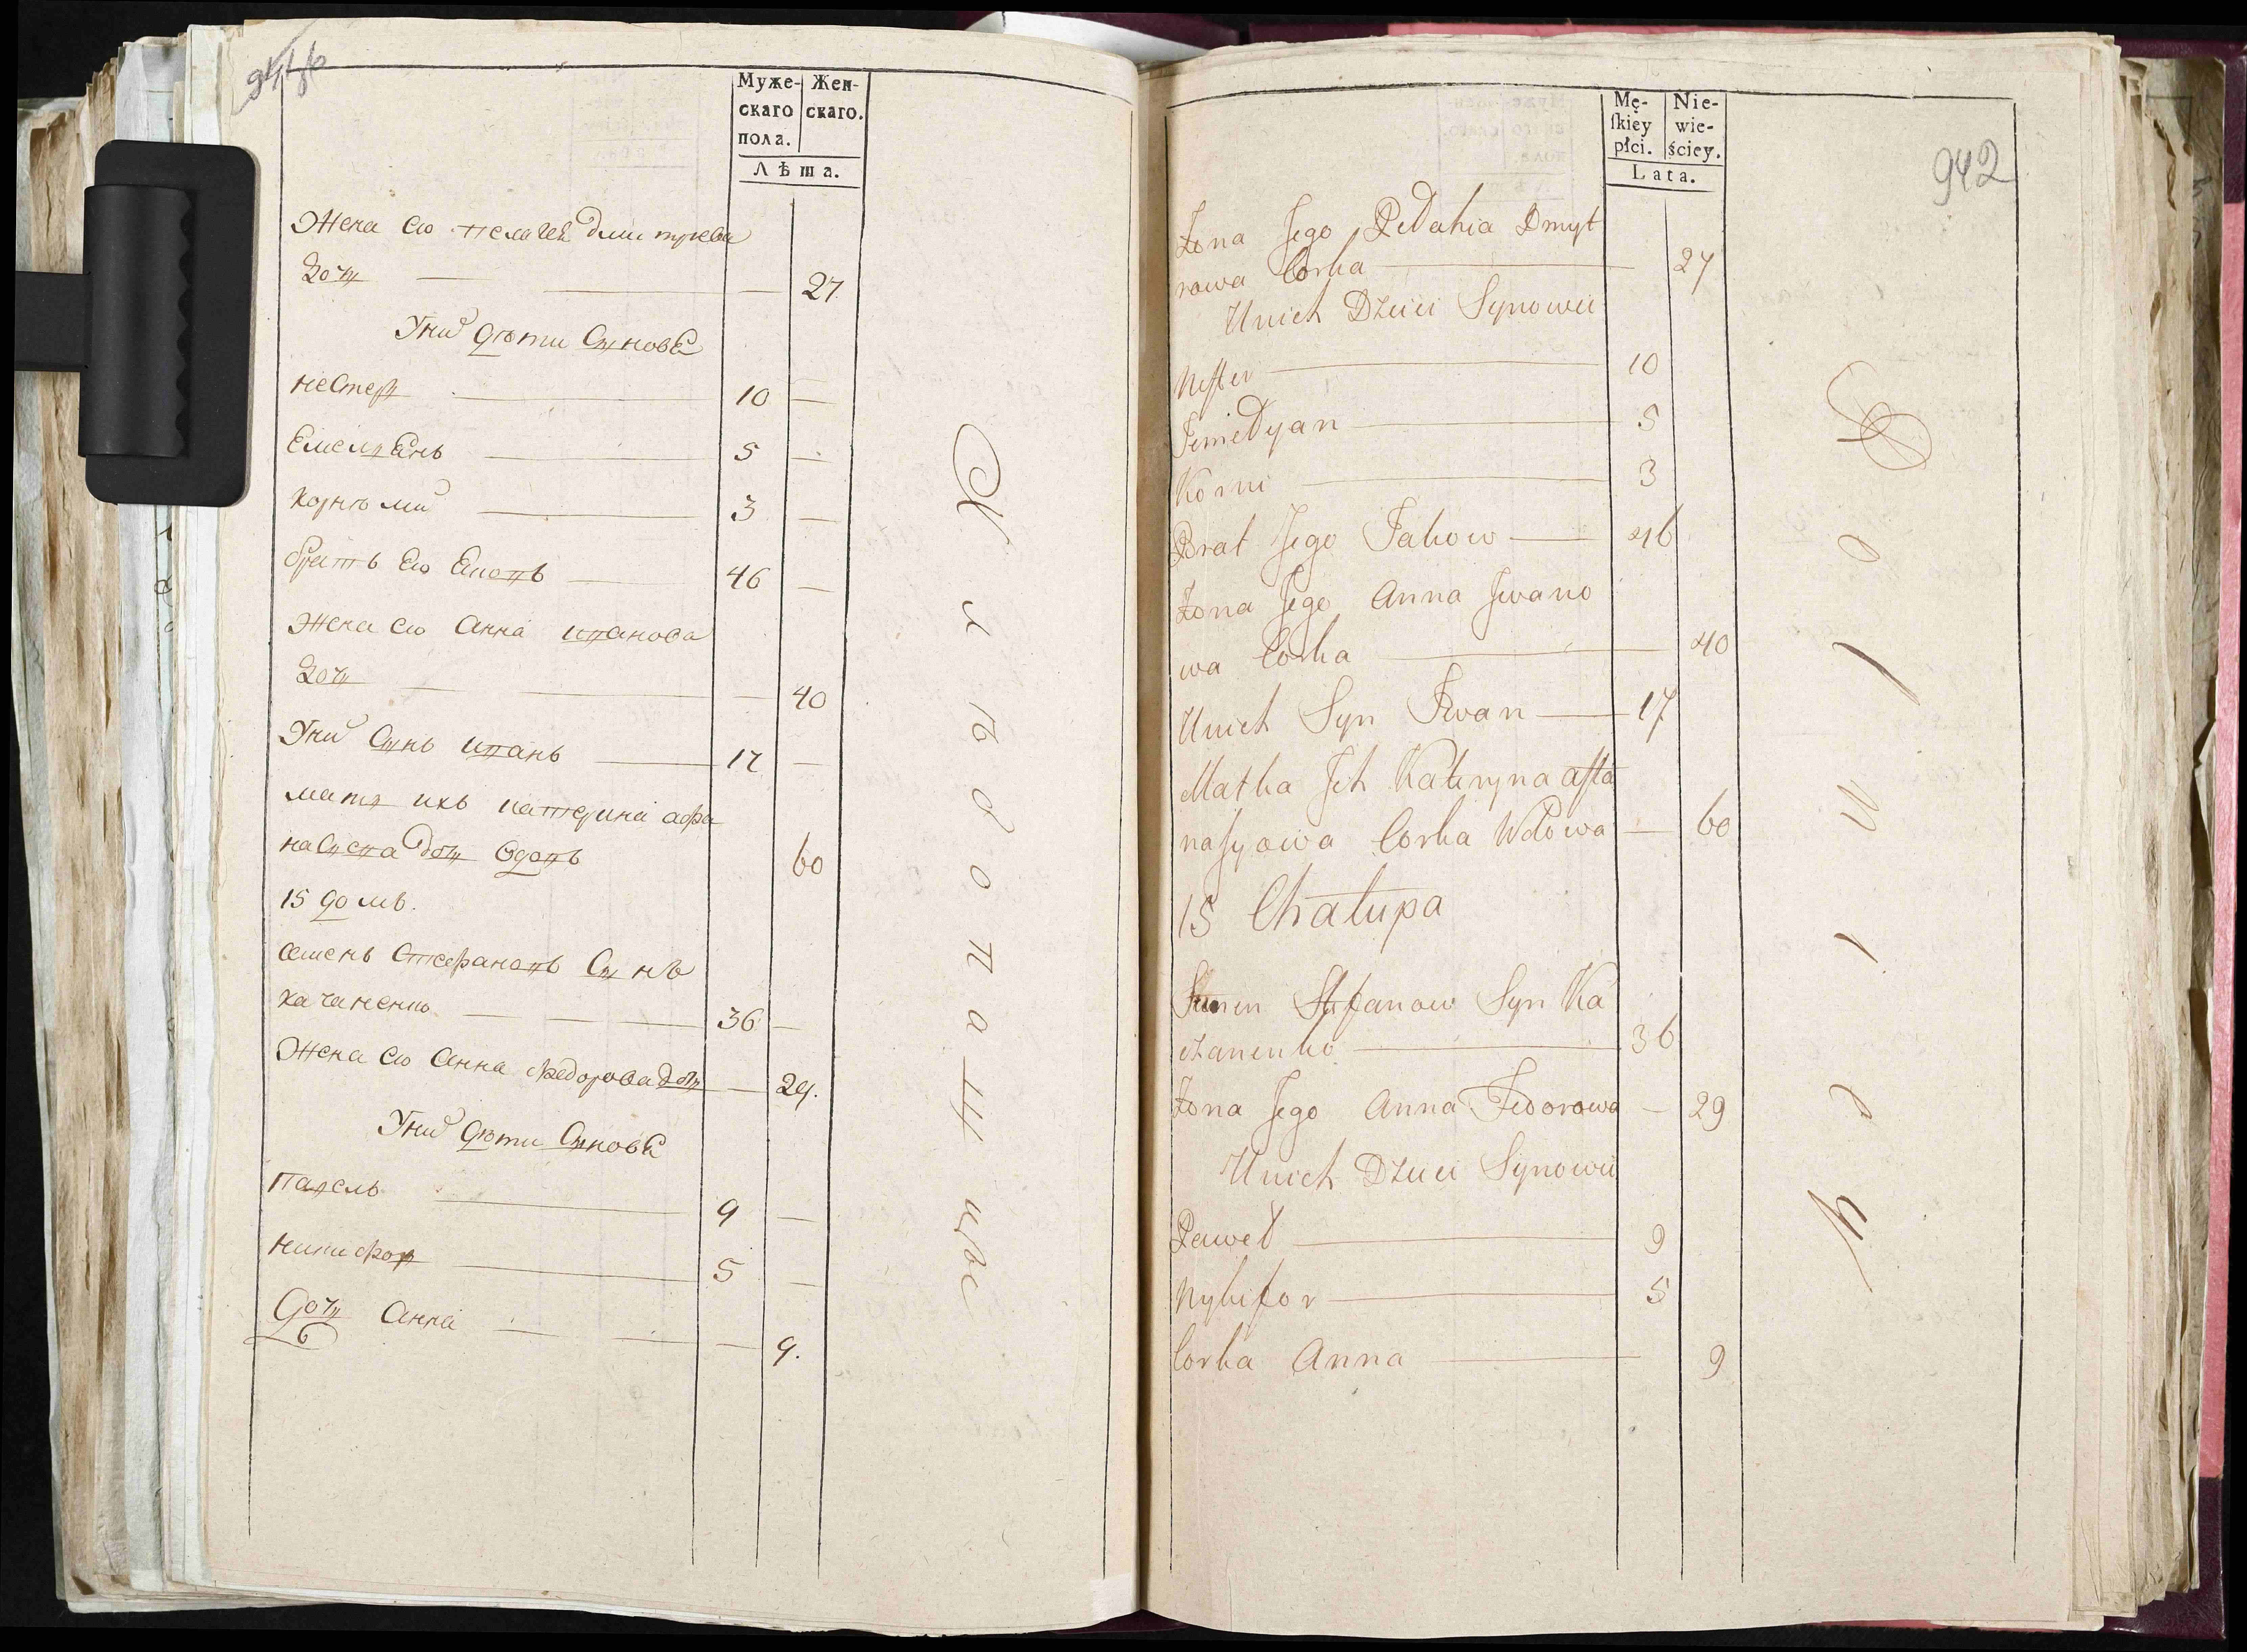 Муже-
скаго
пола.
Жен-
скаго.
Лѣта.
Жена его пелагея дмитрева
дочь 27
У них дети Сыновя
нестеръ 10
Емелянъ 5
Корнѣи 3
братъ его Яковъ 46
Жена его Анна иванова
дочь 40
У них Сынъ иванъ 17
мать ихъ катерина афа
насиева дочь вдова 60
15 домъ.
семенъ Стефановъ Сынъ
каченко 36
Жена его Анна федорова дочь 29.
У них дети Сыновя
Павелъ 9
никифоръ 5
Дочь Анна 9.
Хлѣбопашцы
942
Mę-
ſkiey
płci.
Nie-
wie-
ściey.
Lata.
Żona Jego Pelahia Dmyt
rowa Corka 27
U nich Dzieci Synowie
Neſter 10
Jemelyan 5
Korni 3
Brat Jego Jakow 46
Żona Jego Anna Jwano
wa Corka 40
U nich Syn Jwan 17
Matka Jch Kateryna Afta
naſyowa Corka Wdowa 60
15 Chałupa
Semen Stefanow Syn Ka
czanenko 36
Żona Jego Anna Fedorowa 29
U nich Dzieci Synowie
Paweł 9
Nykifor 5
Corka Anna 9